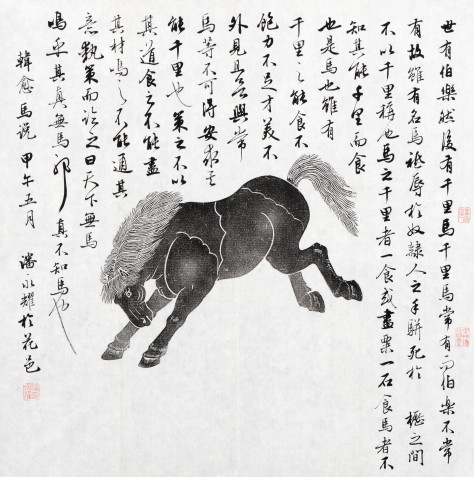 世有伯樂然後有千里馬千里馬常有而伯樂不常
有故雖有名馬祗辱於奴隸人之手駢死於 櫪之間
不以千里稱也馬之千里者一食或盡粟一石食馬者不
知其能千里而食
也是馬也雖有
千里之能食不
飽力不足才美不
外見且與常
馬等不可得安求其
能千里也策之不以
其道食之不能盡
其材鳴之不能通其
意執策而臨之曰天下無馬
嗚乎其真無馬邪 真不知馬也
韓愈馬說 甲午五月 潘永耀於花邑